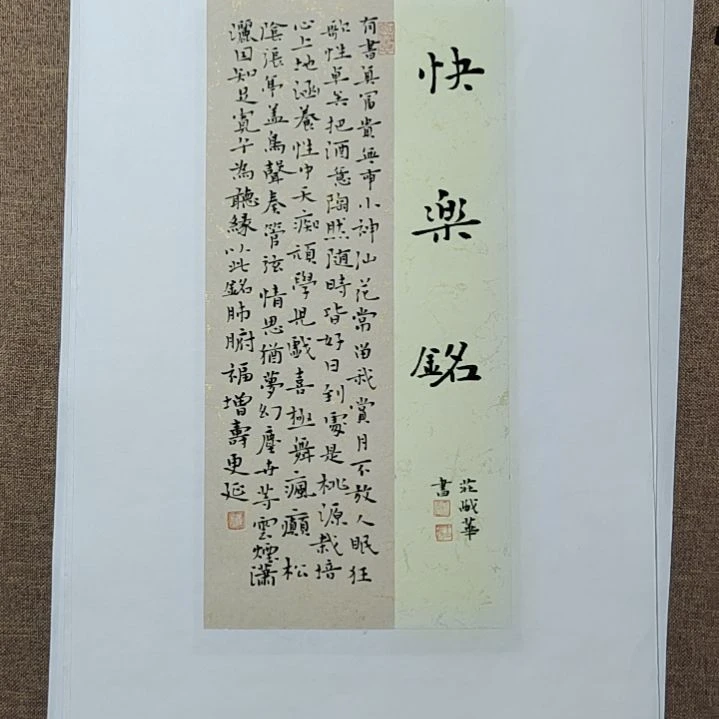 快楽銘
莊華
書
有書真富貴無事小神仙花常留我賞月不放人眠狂
歌性卓把酒意陶然随時皆好日到處是桃源栽培
心上地涵養性中天痴頑學兒戲喜極舞瘋癲松
陰張傘蓋鳥聲奏管弦情思猶夢幻塵世等雲煙瀟
灑因知足寬為聽緣以此銘肺腑福增壽更延